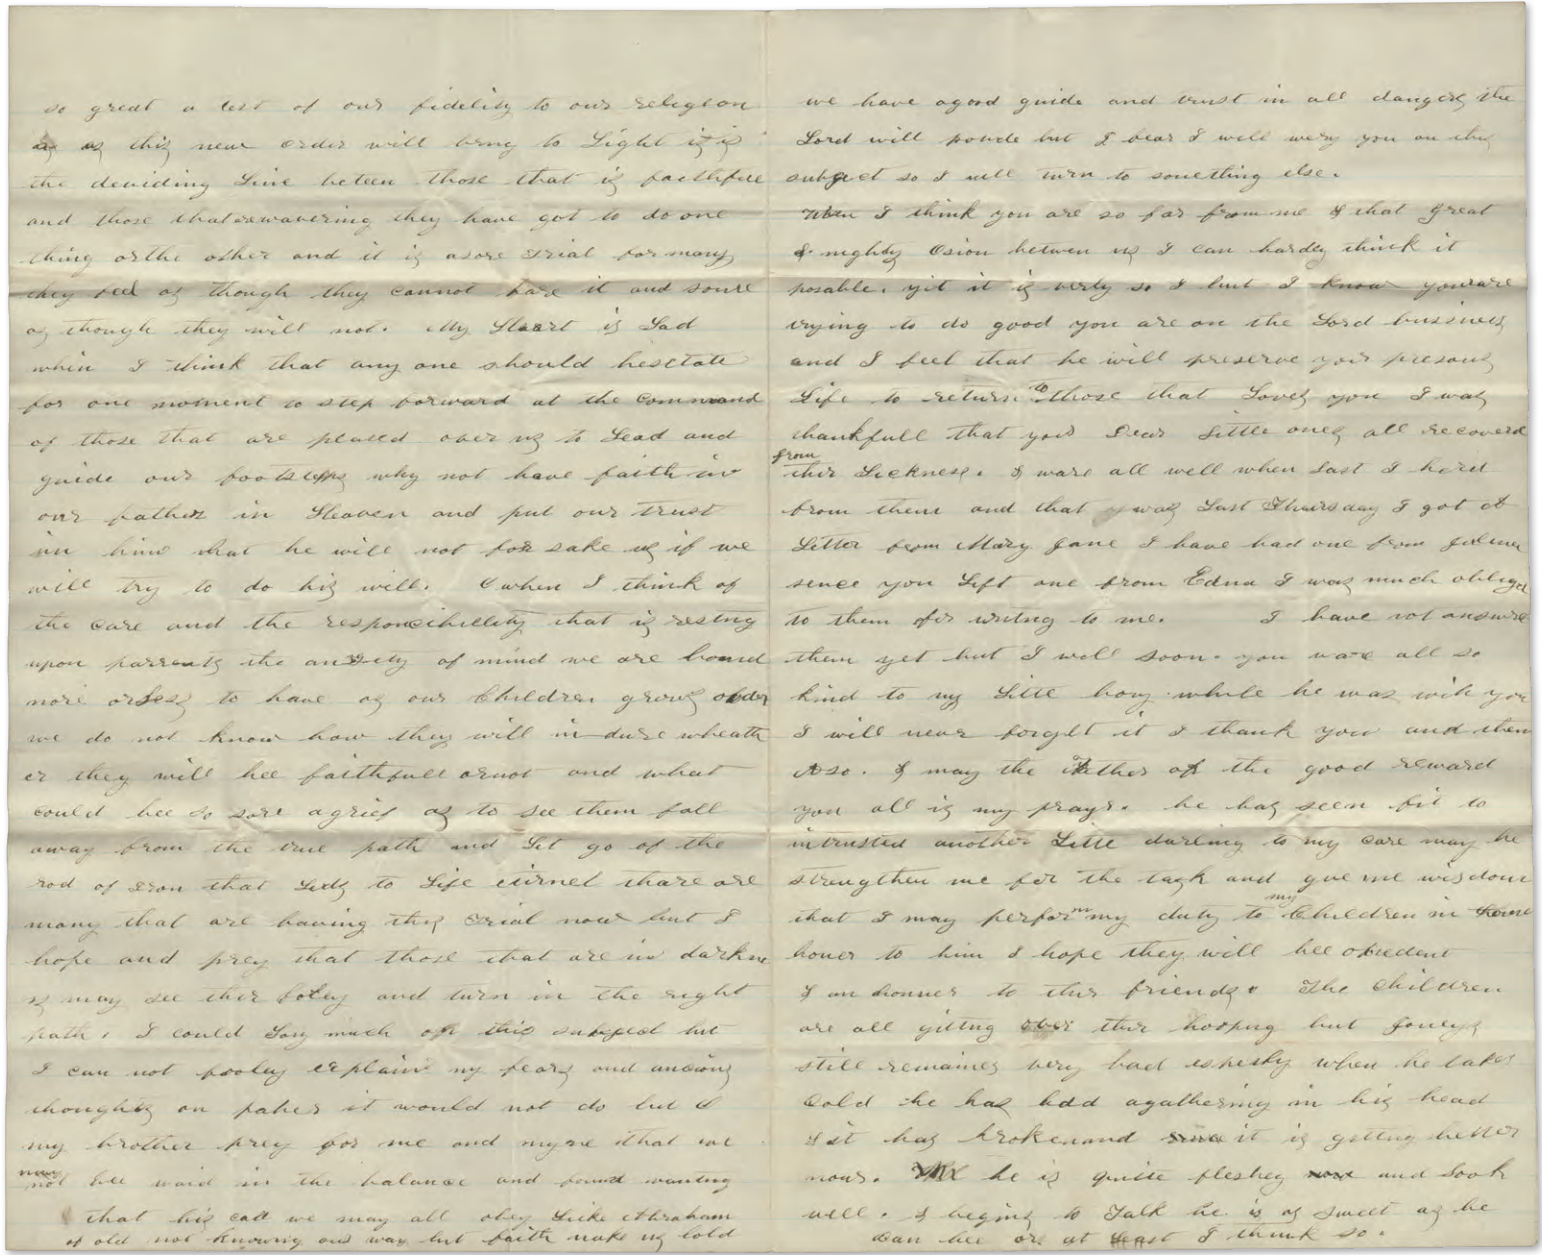 so great a test of our fidelity to our relegeon
as this new order will bring to Light it is
the deviding Line beteen those that is faithfull
and those that are wavering they have got to do one
thing or the other and it is a sore trial for many
they feel as though they cannot bare it and some
as though they will not. My Heart is Sad
when I think that any one should hesetate
for one moment to step forward at the command
of those that are placed over us to Lead and
guide our footsteps why not have faith in
our father in Heaven and put our trust
in him that he will not forsake us if we
will try to do his will. O when I think of
the care and the responcibillety that is resting
upon parrents the anxiety of mind we are bound
more or less to have as our Children grows older
we do not know how they will indure wheath
er they will bee faithfull or not and what
could bee so sore a grief as to see them fall
away from the true path and Let go of the
rod of Iron that Leeds to Life eturnel thare are
many that are having this trial now but I
hope and prey that those that are in darkne
ss may see thir foley and turn in the right
path. I could Say much on this subject but
I can not fooley explain my fears and ancious
thoughts on paper it would not do but O
my brother prey for me and myne that we
may not bee waid in the balance and found wanting
that his call we may all obey Like Abraham
of old not knowing our way but faith make us bold
we have a good guide and trust in all dangers the
Lord will provde but I fear I will wery you on this
subject so I will turn to something else.
When I think you are so far from me & that great
& mighty Osion between us I can hardly think it
posable. yit it is verly so & but I know you are
trying to do good you are on the Lord bussiness
and I feel that he will preserve your presous
Life to return to those that Loves you I was
thankfull that your Dear Little ones all recoverd
from thir Sickness. & ware all well when Last I herd
from them and that was Last Thursday I got a
Letter from Mary Jane I have had one from
sence you Left one from Edna I was much obliged
to them for writng to me. I have not answerd
them yet but I will soon. you ware all so
kind to my Litte boy while he was with you
I will never forget it I thank you and them
Also. & may the father of the good reward
you all is my prayr. he has seen fit to
intrusted another Litte darling to my care may he
strengthen me for the task and give me wisdom
that I may perform my duty to my Children in
honer to him I hope they will bee obedent
& an honner to thir friends. The Children
are all gitting over thir hooping but
still remaines very bad espesly when he takes
Cold he has had a gathering in his head
& it has broken and it is getting better
now. he is quite fleshey and Look
well. & begins to Talk he is as Sweet as he
Can bee or at Least I think so.